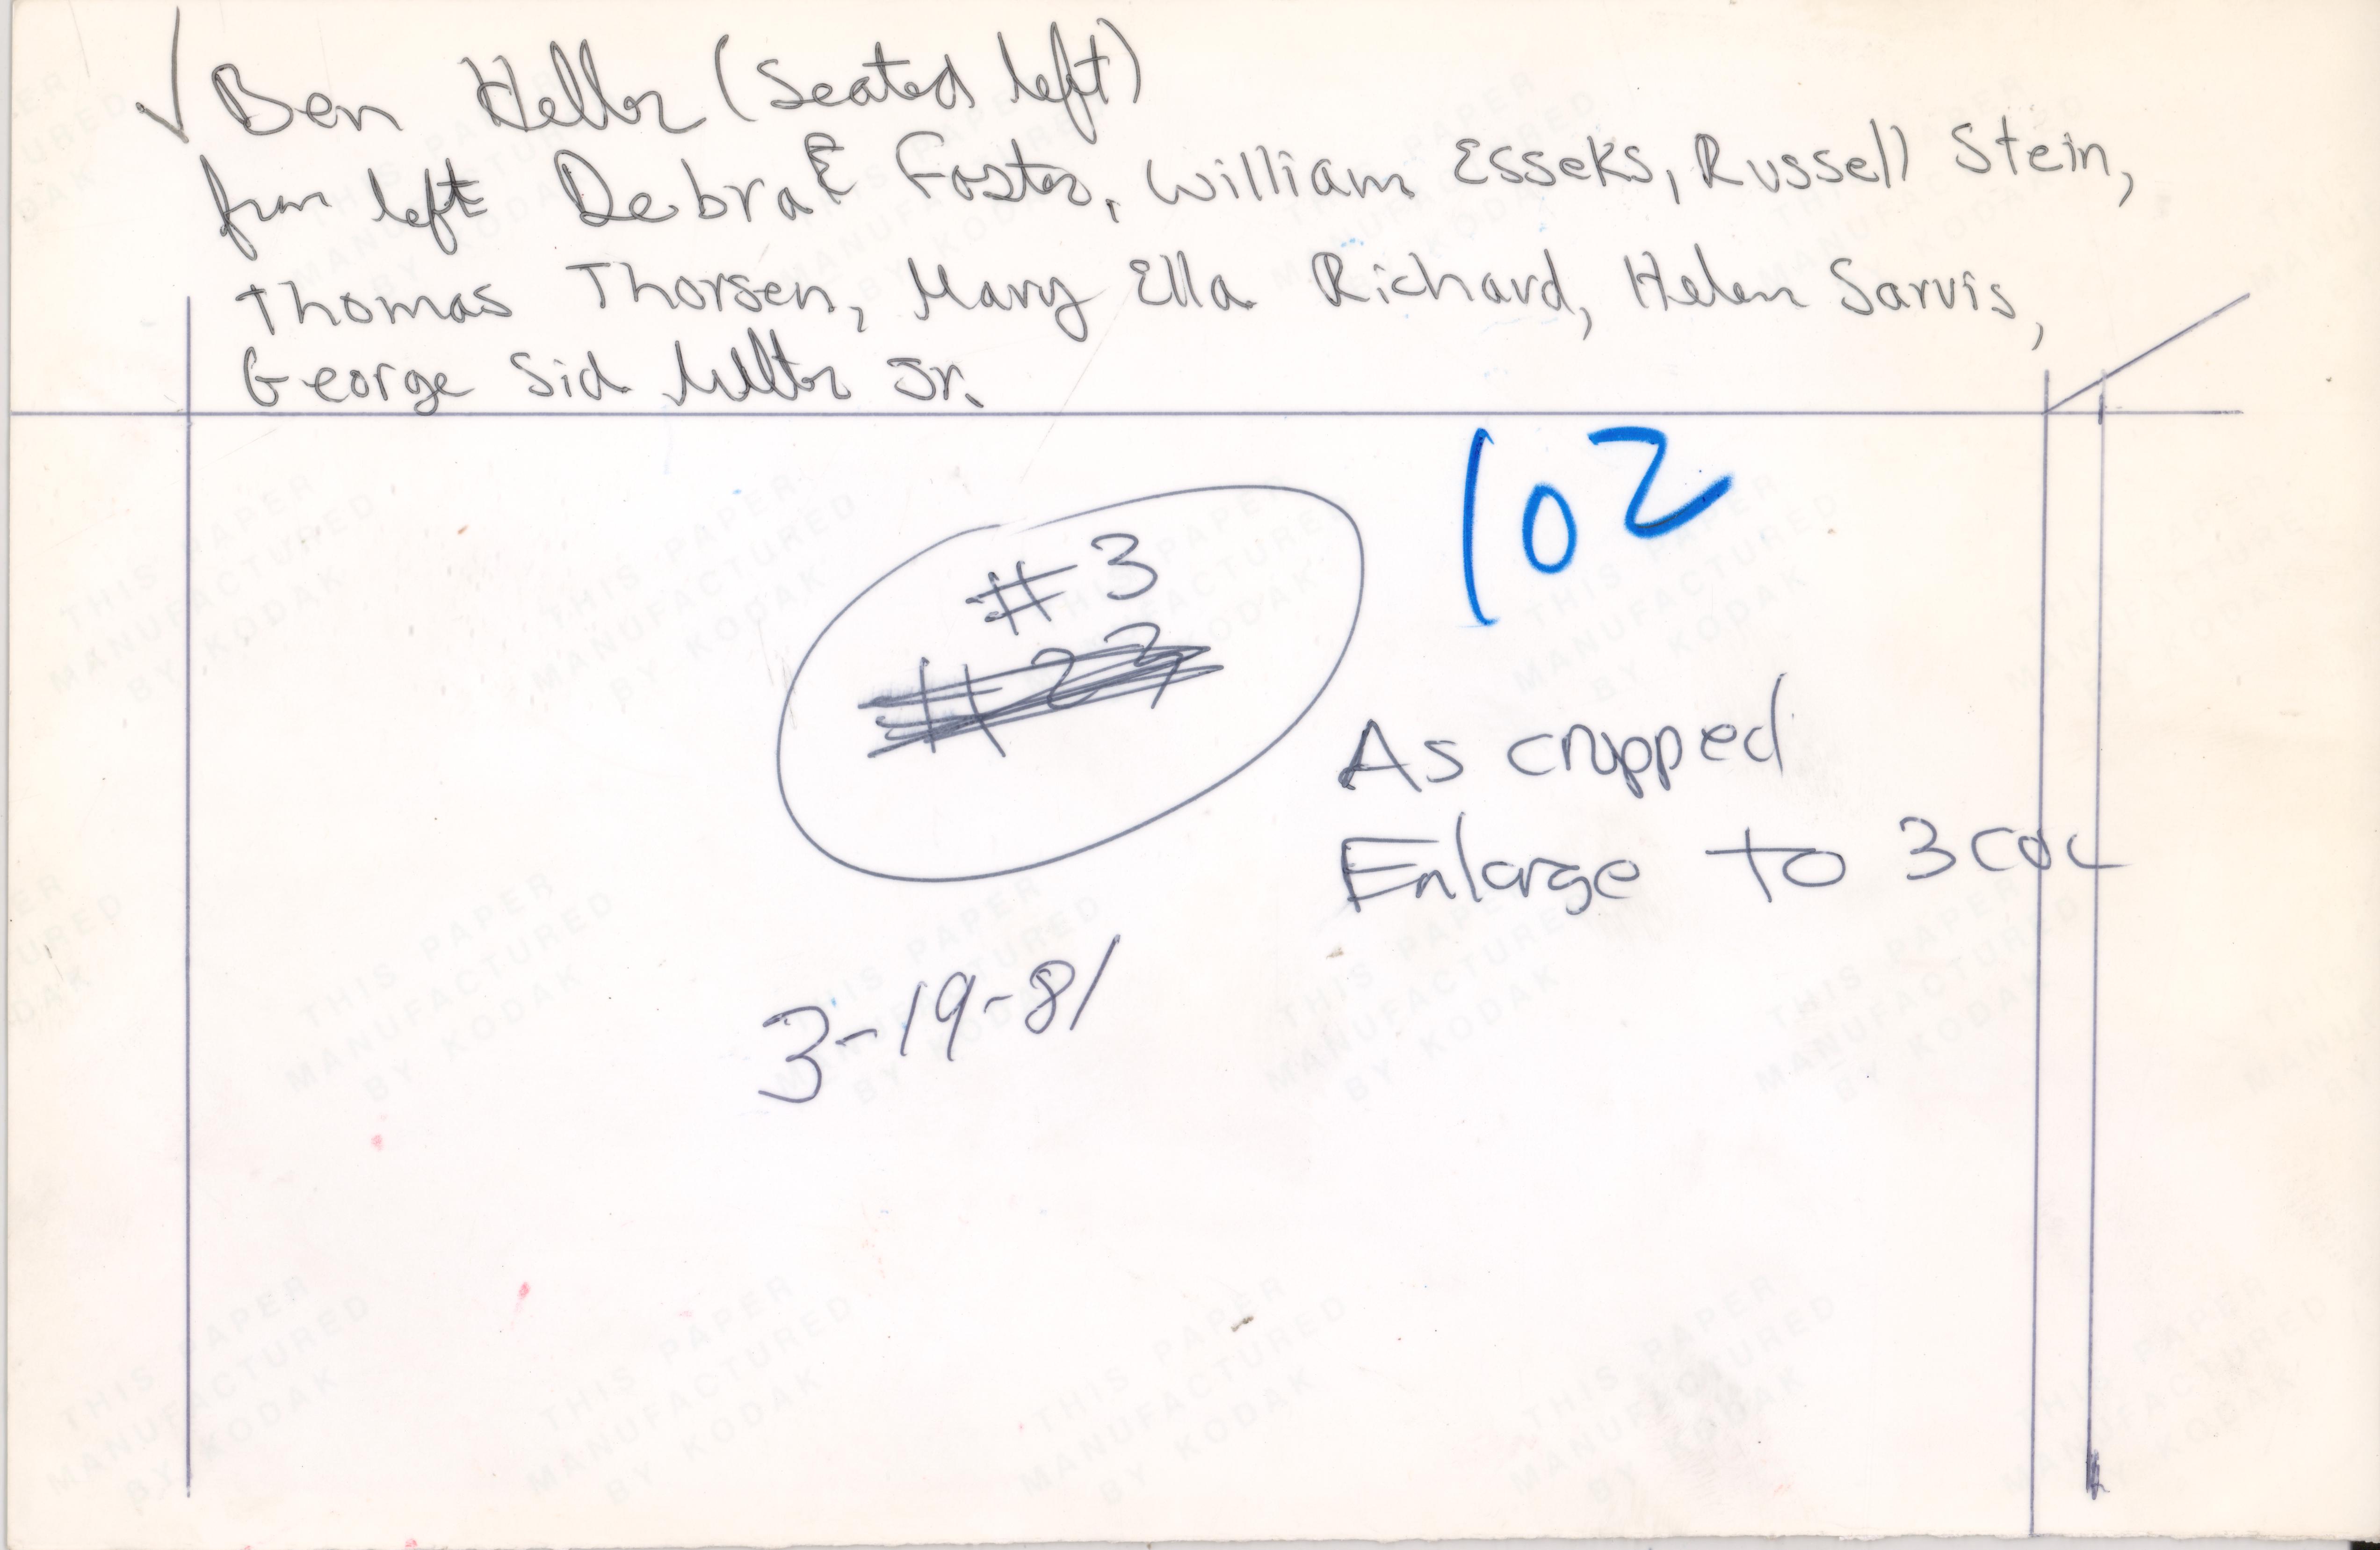 ✓ Ben Heller (Seated left)
from left Debra E Foster, William Esseks, Russell Stein,
Thomas Thorsen, Mary Ella Richard, Helen Sarvis,
George Sid Miller Jr.
102
#3
#23
As cropped
Enlarge to 3 COL
3-19-81
THIS PAPER
MANUFACTURED
BY KODAK